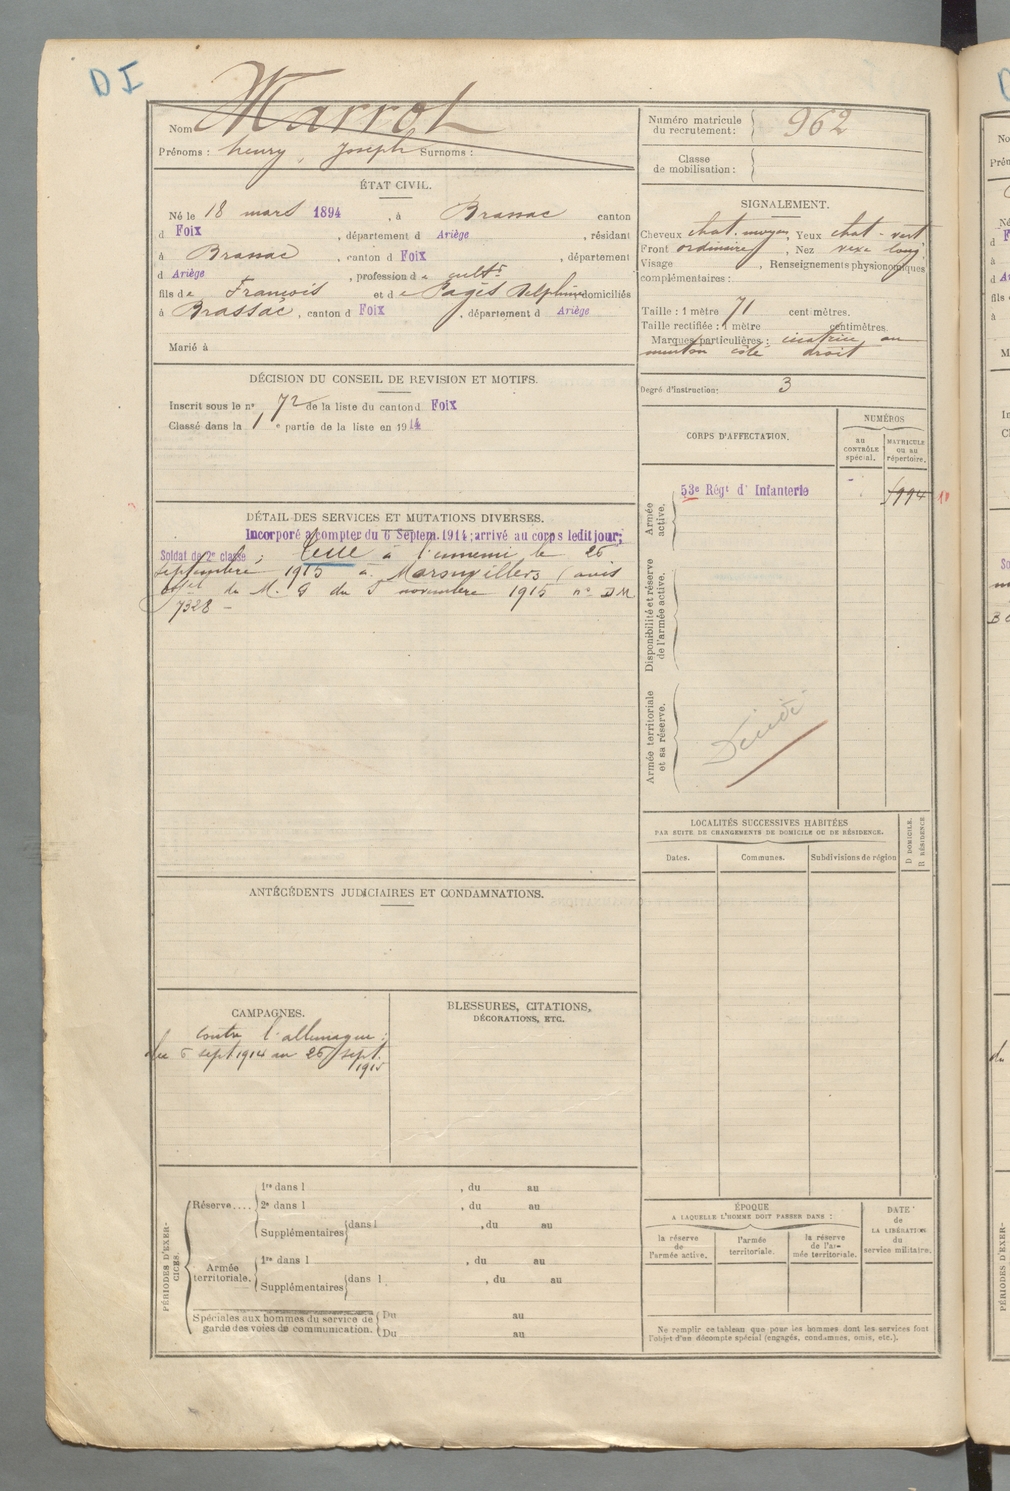 DI
Nom Marrot
Prénoms : henry, Joseph Surnoms :
Numéro matricule du recrutement : 962
Classe de mobilisation :
ÉTAT CIVIL.
Né le 18 mars 1894, à Brassac canton
d Foix, département d Ariège, résidant
à Brassac, canton d Foix, département
d Ariège, profession d e cultr
fils de François et d e Pagès Delphine domiciliés
à Brassac, canton d Foix, département d Ariège
Marié à
SIGNALEMENT.
Cheveux chat. moyen, Yeux chat - vert
Front ordinaire, Nez long.
Visage , Renseignements physionomiques
complémentaires :
Taille : 1 mètre 71 centimètres.
Taille rectifiée : 1 mètre centimètres.
Marques particulières : cicatrice au
menton côté droit
Degré d'instruction : 3
DÉCISION DU CONSEIL DE REVISION ET MOTIFS.
Inscrit sous le n° 72 de la liste du canton d Foix
Classé dans la 1e partie de la liste en 1914
CORPS D'AFFECTATION.
NUMÉROS
au CONTRÔLE spécial.
MATRICULE ou au répertoire.
Armée active.
53e Régt d' Infanterie
Disponibilité et réserve de l'armée active.
Armée territoriale et sa réserve.
Décédé
DÉTAIL DES SERVICES ET MUTATIONS DIVERSES.
Incorporé à compter du 6 Septem. 1914; arrivé au corps ledit jour;
Soldat de 2e classe; tué à l'ennemi le 25
septembre 1915 à (avis
offel du M. G du 5 novembre 1915 n° DM
7328 -
LOCALITÉS SUCCESSIVES HABITÉES
PAR SUITE DE CHANGEMENTS DE DOMICILE OU DE RÉSIDENCE.
Dates.
Communes.
Subdivisions de région
D DOMICILE.
R RÉSIDENCE.
ANTÉCÉDENTS JUDICIAIRES ET CONDAMNATIONS.
CAMPAGNES.
Contre l'allemagne :
du 6 sept 1914 au 25 sept.
1915
BLESSURES, CITATIONS,
DÉCORATIONS, ETC.
PÉRIODES D'EXERCICES.
Réserve....
1re dans l , du au
2e dans l , du au
Supplémentaires dans l , du au
Armée territoriale.
1re dans l , du au
Supplémentaires dans l , du au
Spéciales aux hommes du service de garde des voies de communication.
Du au
Du au
ÉPOQUE
A LAQUELLE L'HOMME DOIT PASSER DANS :
la réserve de l'armée active.
l'armée territoriale.
la réserve de l'armée territoriale.
DATE de LA LIBÉRATION du service militaire.
Ne remplir ce tableau que pour les hommes dont les services font
l'objet d'un décompte spécial (engagés, condamnés, omis, etc.).